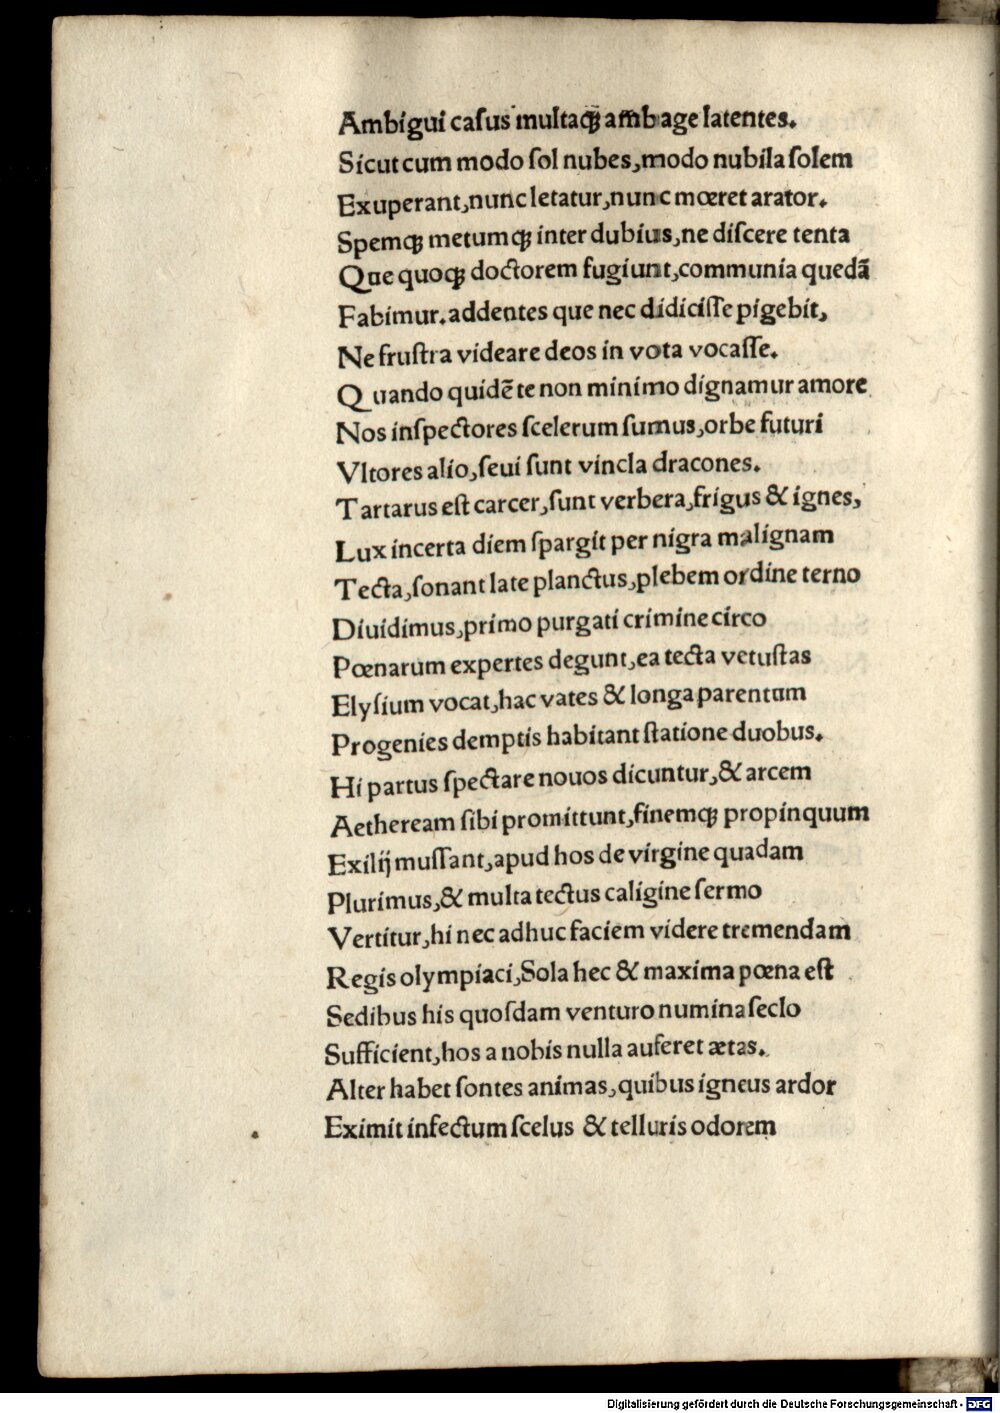 Ambigui caſus multaqꝫ ambage latentes.
Sicut cum modo ſol nubes, modo nubila ſolem
Exuperant, nunc letatur, nunc mœret arator.
Spemqꝫ metumqꝫ inter dubius, ne diſcere tenta
Que quoqꝫ doctorem fugiunt, communia quedā
Fabimur. addentes que nec didiciſſe pigebit,
Ne fruſtra videare deos in vota vocaſſe.
Quando quidē te non minimo dignamur amore
Nos inſpectores ſcelerum ſumus, orbe futuri
Vltores alio, ſeui ſunt vincla dracones.
Tartarus eſt carcer, ſunt verbera, frigus & ignes,
Lux incerta diem ſpargit per nigra malignam
Tecta, ſonant late planctus, plebem ordine terno
Diuidimus, primo purgati crimine circo
Pœnarum expertes degunt, ea tecta vetuſtas
Elyſium vocat, hac vates & longa parentum
Progenies demptis habitant ſtatione duobus.
Hi partus ſpectare nouos dicuntur, & arcem
Aetheream ſibi promittunt, finemqꝫ propinquum
Exilij muſſant, apud hos de virgine quadam
Plurimus, & multa tectus caligine ſermo
Vertitur, hi nec adhuc faciem videre tremendam
Regis olympiaci, Sola hec & maxima pœna eſt
Sedibus his quoſdam venturo numina ſeclo
Sufficient, hos a nobis nulla auferet ætas.
Alter habet ſontes animas, quibus igneus ardor
Eximit infectum ſcelus & telluris odorem
Digitalisierung gefördert durch die Deutsche Forschungsgemeinschaft - DFG